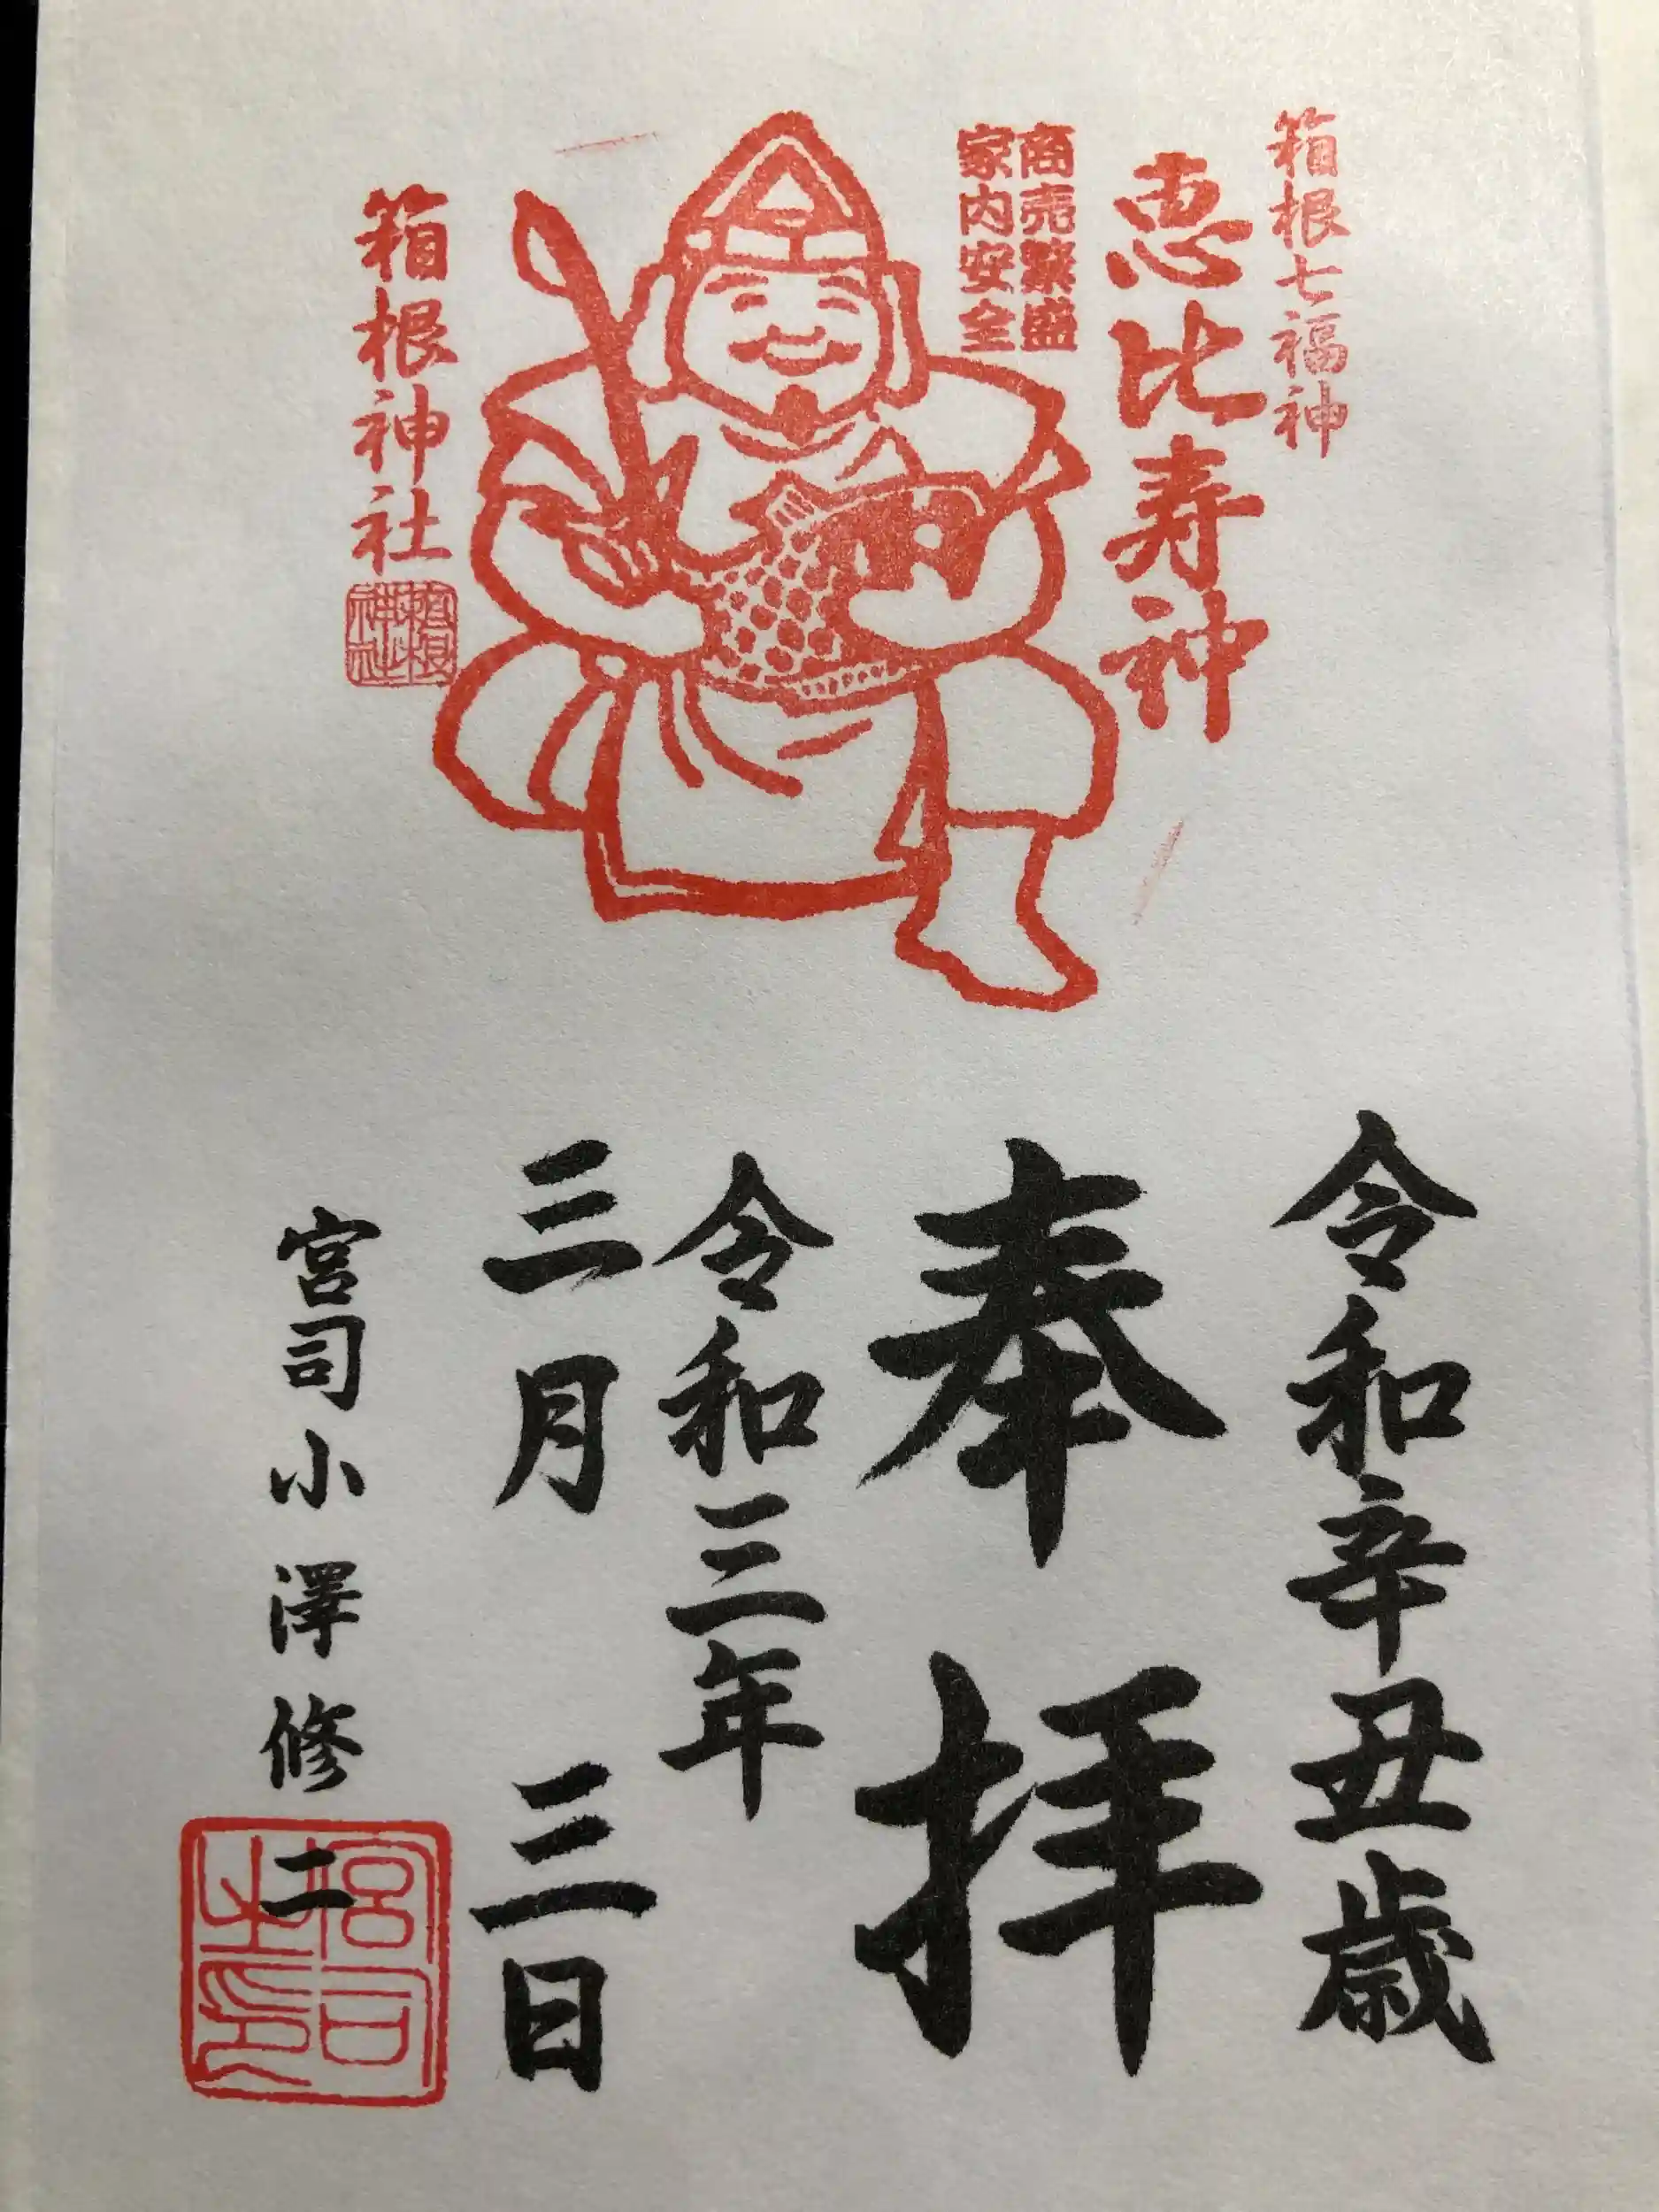 箱根七福神
恵比寿神
商売繁盛
家内安全
箱根神社
箱根
神社
令和辛丑歳
奉拝
令和三年
三月三日
宮司小澤修二
宮司
之印